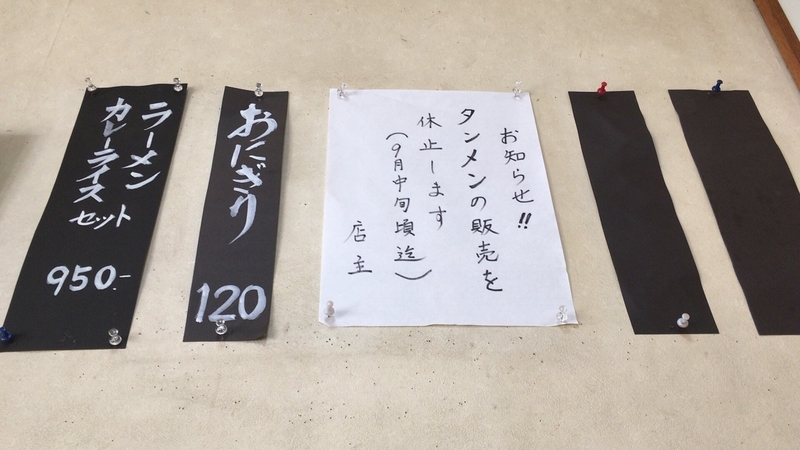 お知らせ!!
タンメンの販売を
休止します
(9月中旬頃迄)
店主
おにぎり
120
ラーメン
カレーライス セット
950.-